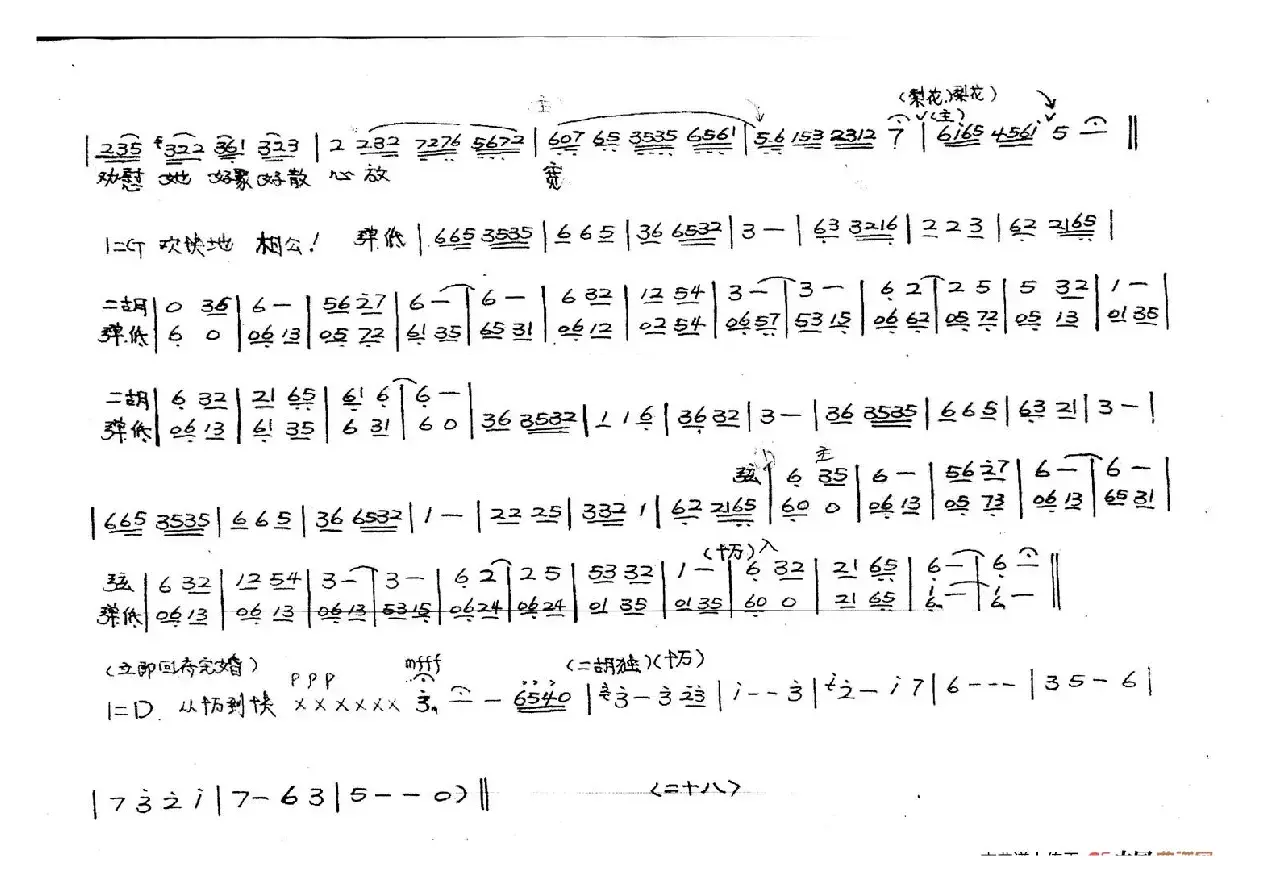 (主) (梨花)(梨花)
(主)
| 235 322 361 323 | 2 232 7276 5672 | 607 65 3535 6561 | 56 153 2312 7 | 6165 4561 5 – ‖
劝慰 她 好聚好散 心 放 宽
1=G 欢快地 相公! 弹低 | 665 3535 | 6 6 5 | 36 6532 | 3 – | 63 3216 | 2 2 3 | 62 2165 |
二胡 | 0 36 | 6 – | 56 27 | 6 – | 6 – | 6 32 | 12 54 | 3 – | 3 – | 6 2 | 2 5 | 5 32 | 1 – |
弹低 | 6 0 | 06 13 | 05 72 | 61 35 | 65 31 | 06 12 | 02 54 | 06 57 | 53 15 | 06 62 | 05 72 | 05 13 | 01 35 |
二胡 | 6 32 | 21 65 | 61 6 | 6 – |
弹低 | 06 13 | 61 35 | 6 31 | 6 0 | 36 3532 | 1 1 6 | 36 32 | 3 – | 36 3535 | 6 6 5 | 63 21 | 3 – |
主
弦 | 6 35 | 6 – | 56 27 | 6 – | 6 – |
| 665 3535 | 6 6 5 | 36 6532 | 1 – | 22 25 | 332 1 | 62 2165 | 60 0 | 06 13 | 05 73 | 06 13 | 65 31 |
(十万)入
弦 | 6 32 | 12 54 | 3 – | 3 – | 6 2 | 2 5 | 53 32 | 1 – | 6 32 | 21 65 | 6 – | 6 – ‖
弹低 | 06 13 | 06 13 | 06 13 | 53 15 | 06 24 | 06 24 | 01 35 | 01 35 | 60 0 | 21 65 | i – | i – ‖
(立即回府完婚) ppp mfff (二胡独)(十万)
1=D 从 到快 xxxxxx 3 – 6540 | 3 – 3 23 | i – – 3 | 2 – i 7 | 6 – – – | 3 5 – 6 |
| 7 3 2 i | 7 – 6 3 | 5 – – 0) ‖ (二十八)